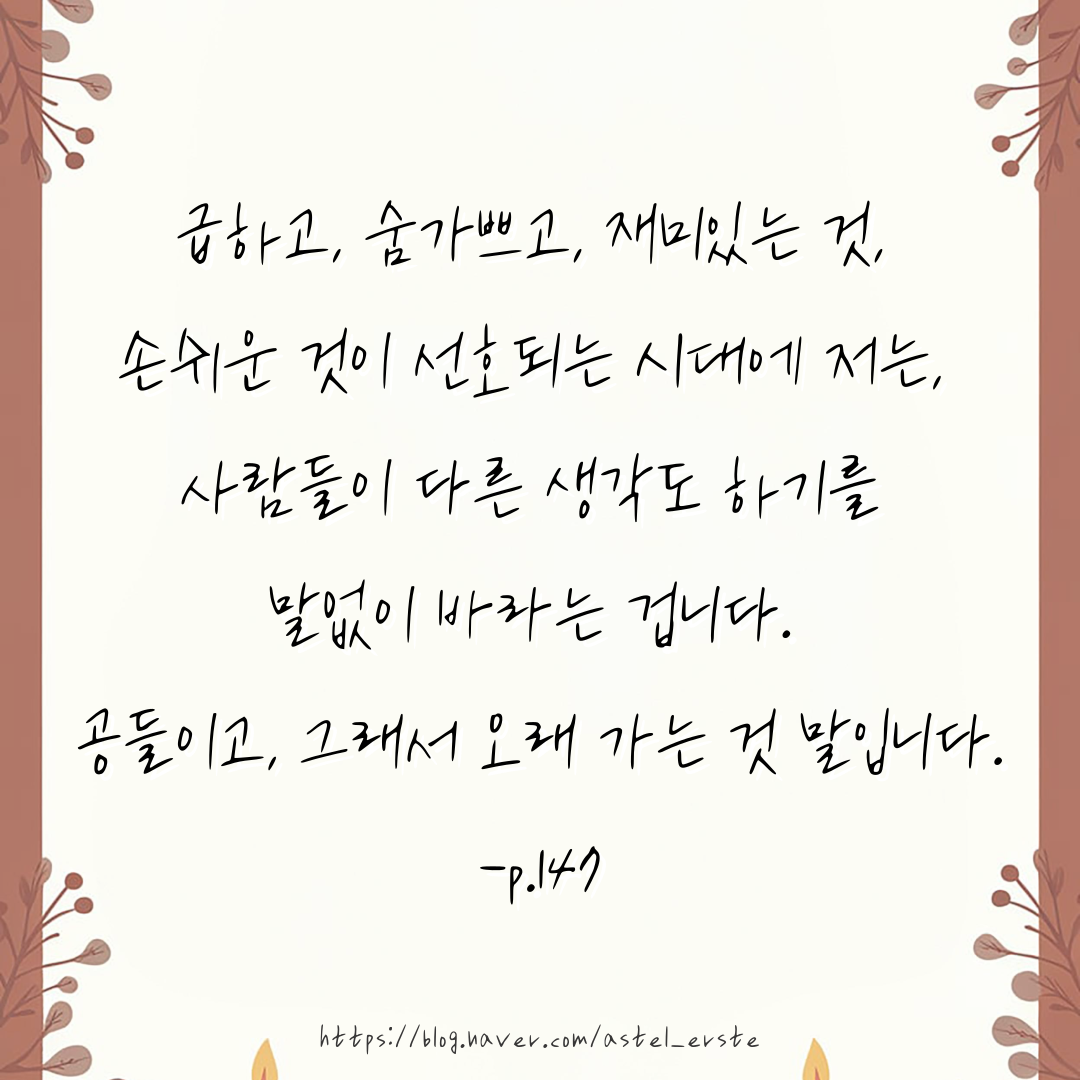 급하고, 숨가쁘고, 재미있는 것,
손쉬운 것이 선호되는 시대에 저는,
사람들이 다른 생각도 하기를
말없이 바라는 겁니다.
공들이고, 그래서 오래 가는 것 말입니다.
-p.147
https://blog.naver.com/astel_erste